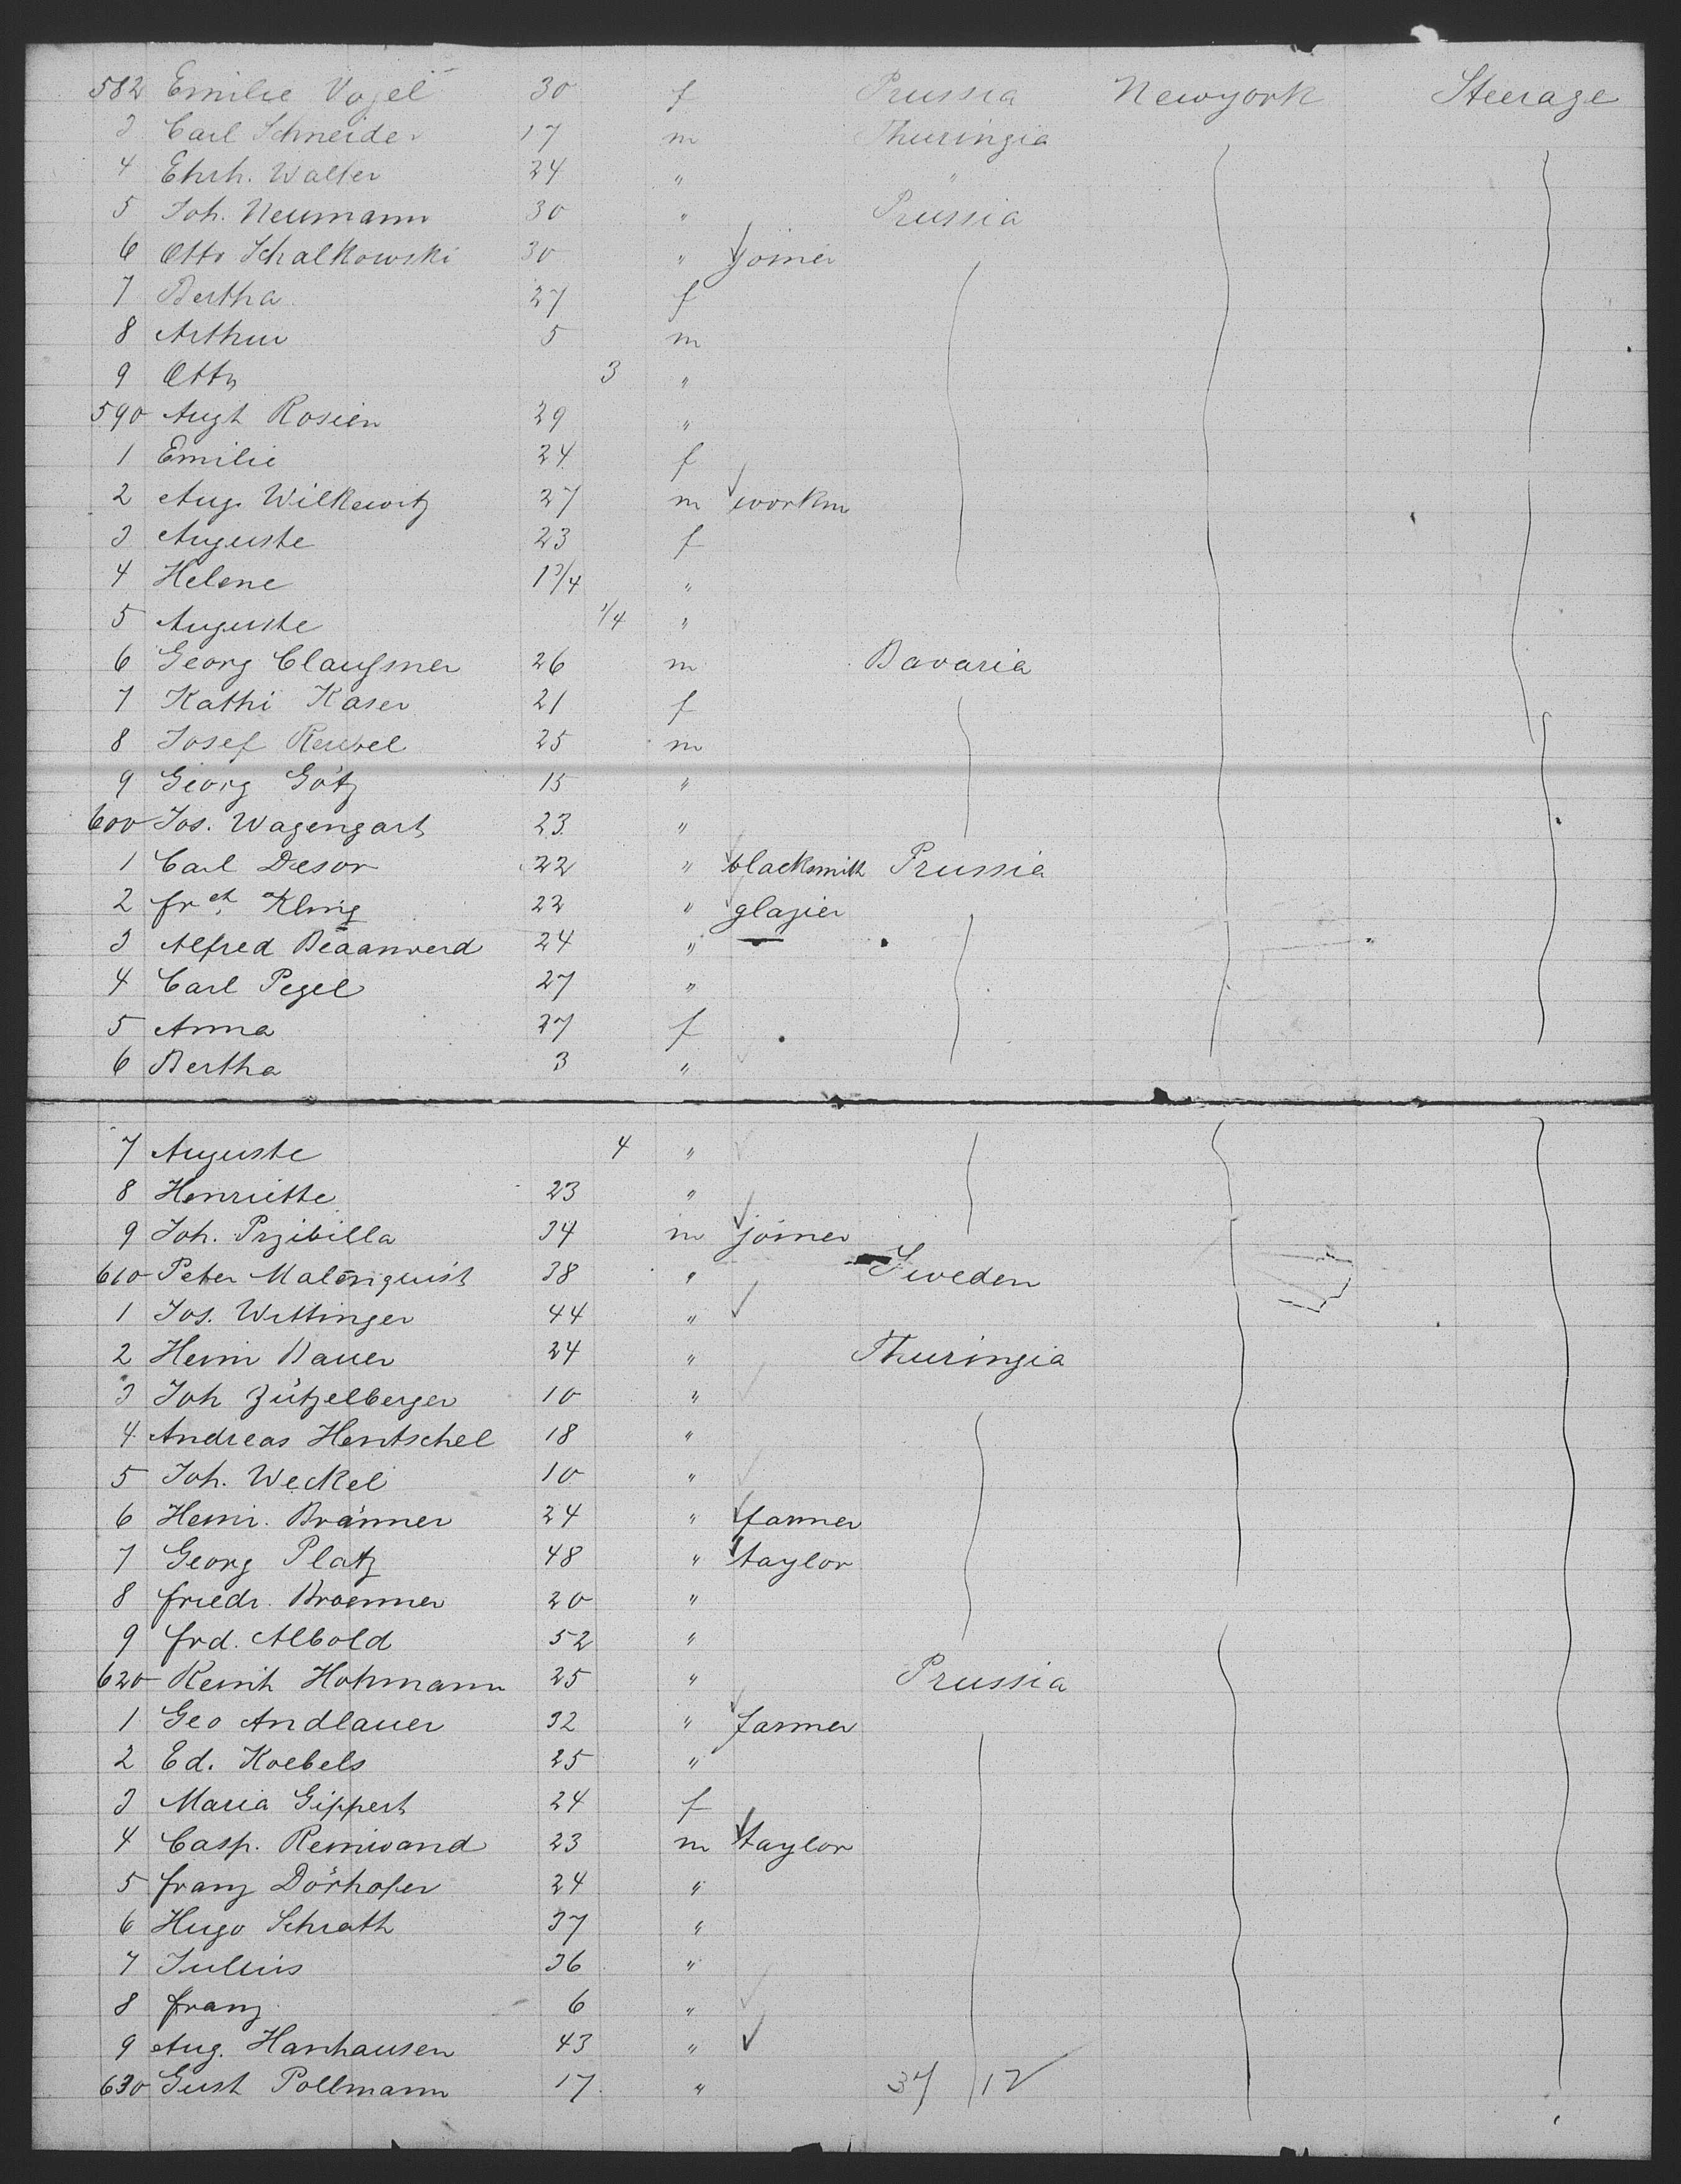 582 Emilie Vogel 30 f Prussia Newyork Steerage
3 Carl Schneider 17 m Thuringia
4 Ehrh. Walter 24 " "
5 Joh. Neumann 30 " Prussia
6 Otto Schalkowski 30 " joiner
7 Bertha 27 f
8 Arthur 5 m
9 Otto 3 "
590 Augt Rosien 29 "
1 Emilie 24 f
2 Aug. Wilkewitz 27 m workm
3 Auguste 23 f
4 Helene 1 3/4 "
5 Auguste 1/4 "
6 Georg Claußner 26 m Bavaria
7 Kathi Kaser 21 f
8 Josef 25 m
9 Georg Götz 15 "
600 Jos. Wagengart 23 "
1 Carl Dresor 22 " blacksmith Prussia
2 frch. Kling 22 " glazier
3 Alfred 24 "
4 Carl Pegel 27 "
5 Anna 27 f
6 Bertha 3 "
7 Auguste 4 "
8 Henriette 23 "
9 Joh. Przibilla 34 m joiner
610 Peter Malmquist 38 " Sweden
1 Jos. Wittinger 44 "
2 Heinr Bauer 24 " Thuringia
3 Joh Zützelberger 10 "
4 Andreas Hentschel 18 "
5 Joh. Weckel 10 "
6 Heinr. Bränner 24 " farmer
7 Georg Platz 48 " taylor
8 friedr. Broenner 20 "
9 frd. Albold 52 "
620 Reinh Hohmann 25 " Prussia
1 Geo Andlauer 32 " farmer
2 Ed. Koebels 25 "
3 Maria Gippert 24 f
4 Casp. Reinwand 23 m taylor
5 franz Dörhofer 24 "
6 Hugo Schrath 37 "
7 Julius 36 "
8 franz 6 "
9 Aug. Hanhausen 43 "
630 Gust Pollmann 17 " 37 / 12